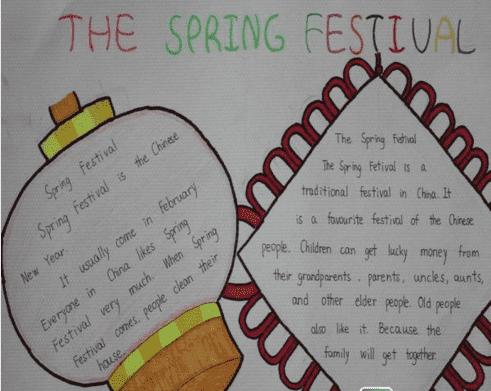 THE SPRING FESTIVAL
Spring Festival
Spring Festival is the Chinese
New Year.
It usually come in February
Everyone in China likes Spring
Festival very much. When Spring
Festival comes, people clean their
house.
The Spring Festival
The Spring Fetival is a
traditional festival in China. It
is a favourite festival of the Chinese
people. Children can get lucky money from
their grandparents. parents, uncles, aunts,
and other elder people. Old people
also like it. Because the
family will get together.